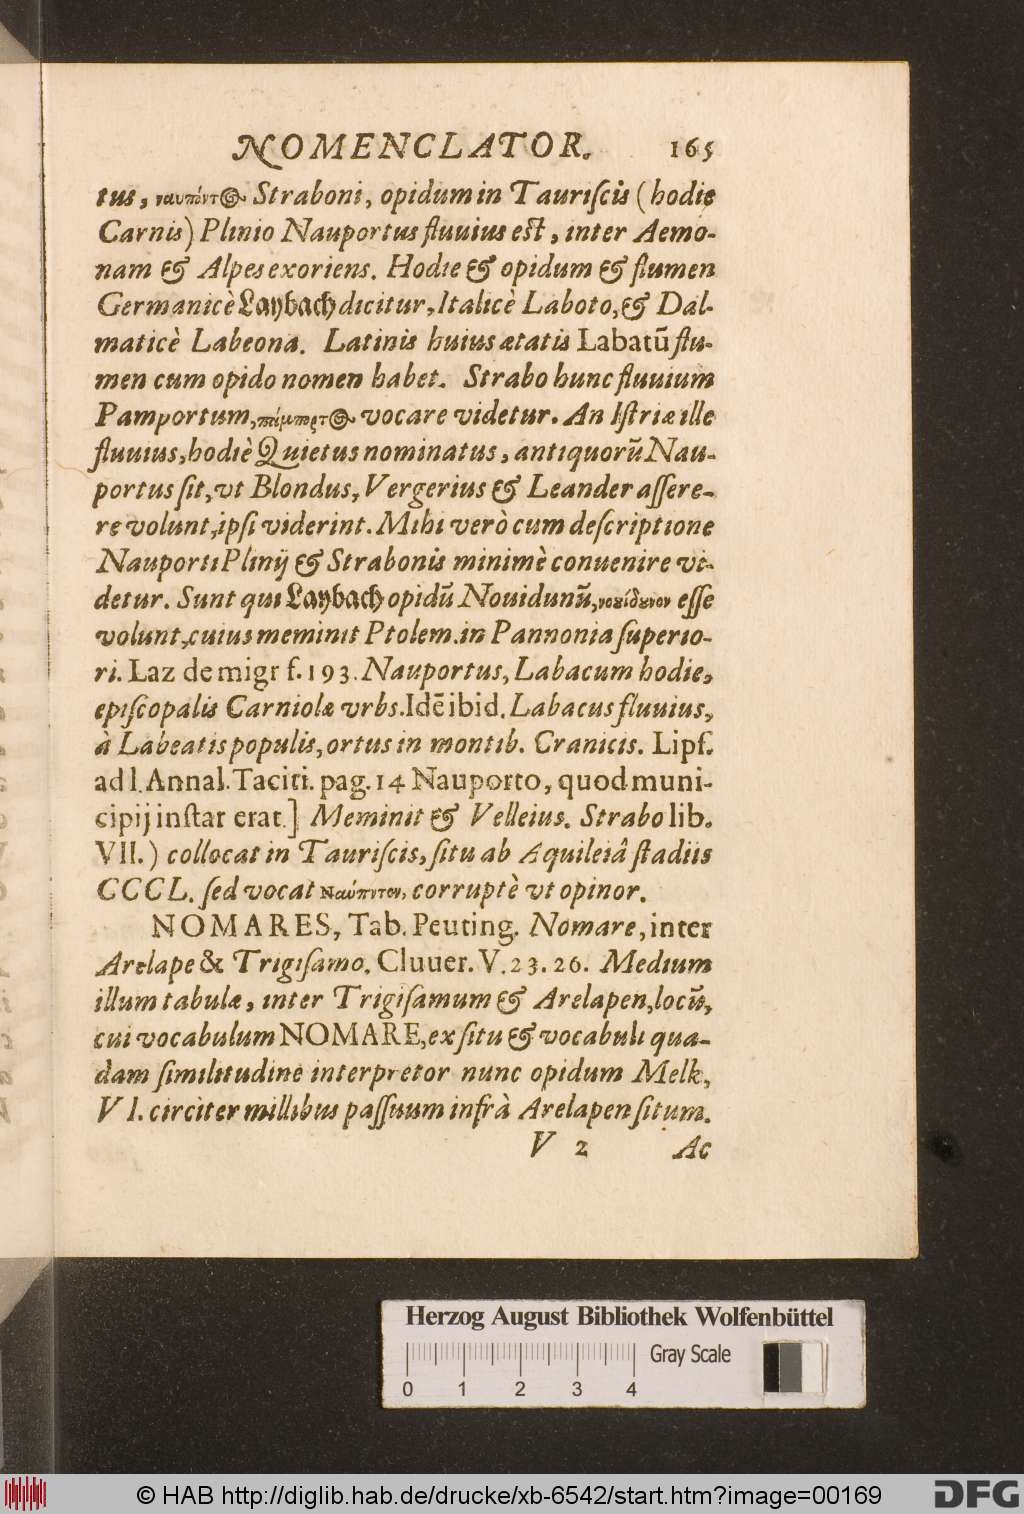 NOMENCLATOR. 165
tus, ναυπόντ@ Straboni, opidum in Tauriſcis (hodie
Carnis) Plinio Nauportus fluuius eſt, inter Aemo-
nam & Alpes exoriens. Hodie & opidum & flumen
Germanicè Laybach dicitur, Italicè Laboto, & Dal-
maticè Labeona. Latinis huius ætatis Labatū flu-
men cum opido nomen habet. Strabo hunc fluuium
Pamportum, vocare videtur. An Iſtriæ ille
fluuius, hodiè Quietus nominatus, antiquorū Nau-
portus ſit, vt Blondus, Vergerius & Leander aſſere-
re volunt, ipſi viderint. Mihi verò cum deſcriptione
Nauporti Plinij & Strabonis minimè conuenire vi-
detur. Sunt qui Laybach opidū Nouidunū, νουίδουνον eſſe
volunt, cuius meminit Ptolem. in Pannonia ſuperio-
ri. Laz de migr f. 193. Nauportus, Labacum hodie,
epiſcopalis Carniolæ vrbs. Idē ibid. Labacus fluuius,
à Labeatis populis, ortus in montib. Cranicis. Lipſ.
ad l. Annal. Taciti. pag. 14 Nauporto, quod muni-
cipij inſtar erat.] Meminit & Velleius. Strabo lib.
VII.) collocat in Tauriſcis, ſitu ab Aquileiâ ſtadiis
CCCL. ſed vocat corruptè vt opinor.
NOMARES, Tab. Peuting. Nomare, inter
Arelape & Trigiſamo. Cluuer. V. 23. 26. Medium
illum tabulæ, inter Trigiſamum & Arelapen, locū,
cui vocabulum NOMARE, ex ſitu & vocabuli qua-
dam ſimilitudine interpretor nunc opidum Melk,
VI. circiter millibus paſſuum infrà Arelapen ſitum.
V 2 Ac
Herzog August Bibliothek Wolfenbüttel
Gray Scale
0 1 2 3 4
© HAB http://diglib.hab.de/drucke/xb-6542/start.htm?image=00169
DFG